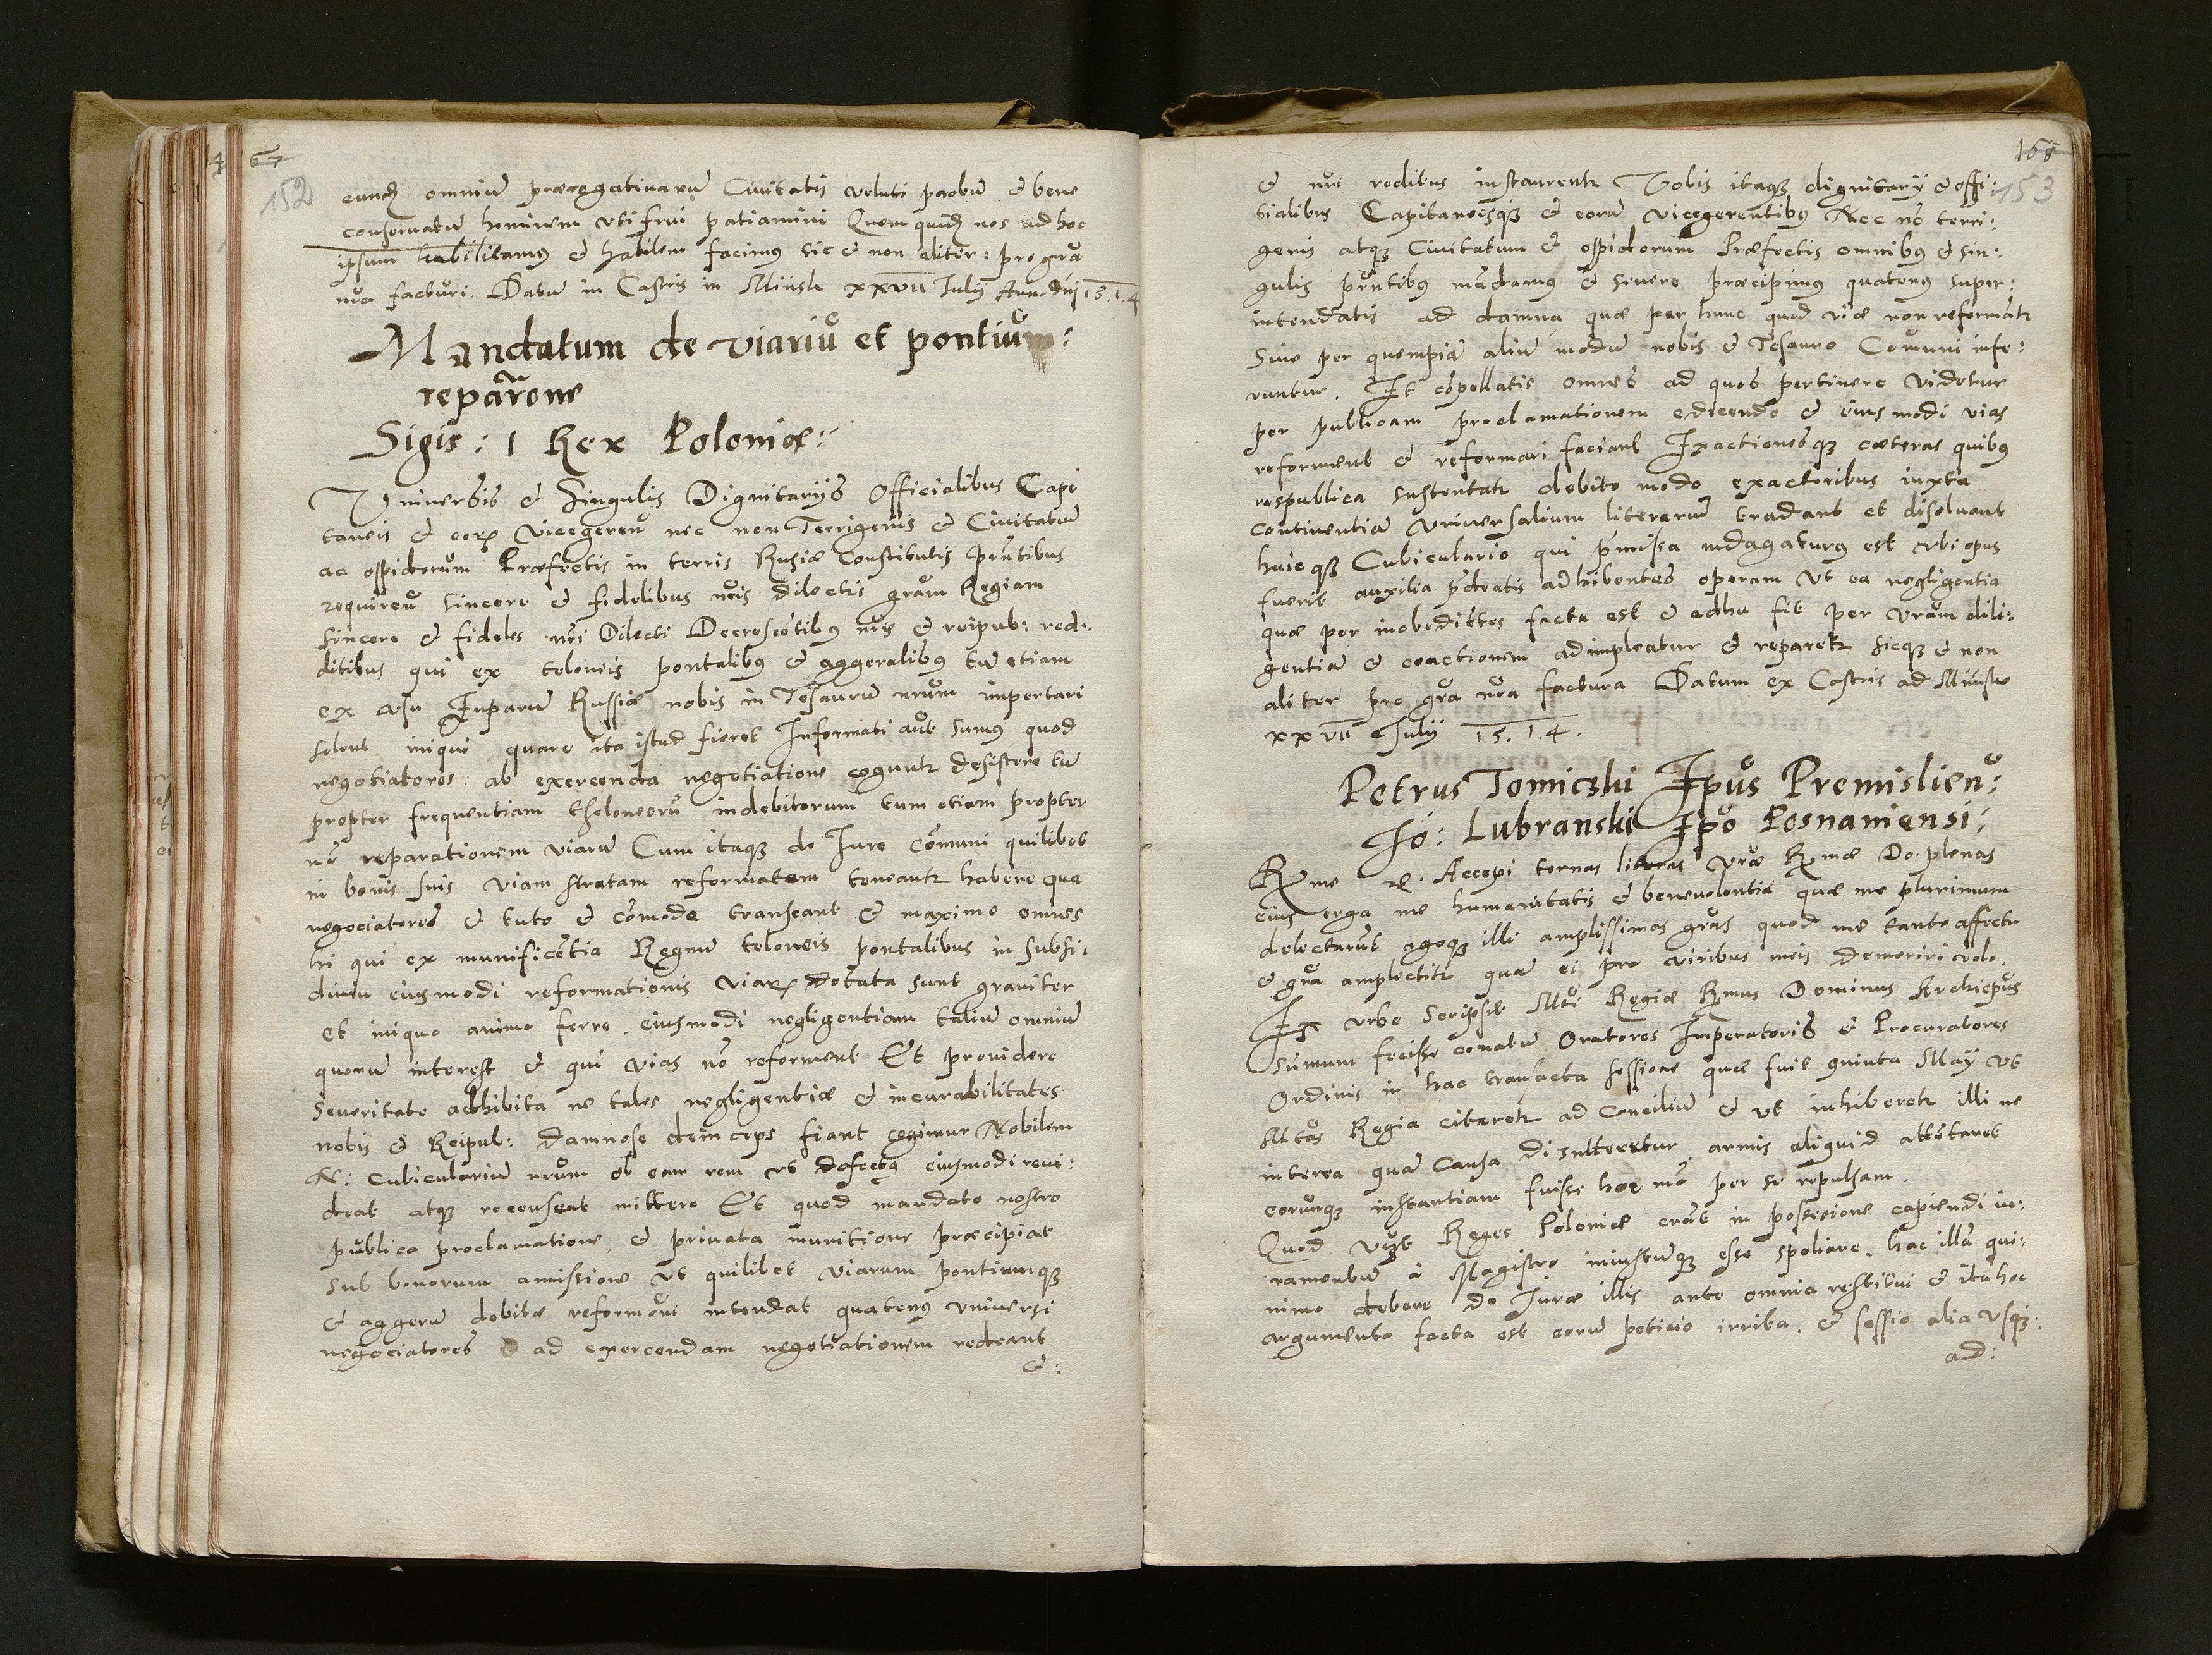 67
152
eundē omniū prærogativarū Civitatis veluti probū & bene
conservatū hominem uti frui patiamini Quem quidē nos ad hoc
ipsum habilitamꝰ & habilem facimꝰ sic & non aliter: pro gr̃a
nr̃a facturi. Datū in Castris in Minsk xxvii Julij Anno Dn̄j 15.1.4
Mandatum de viariū et pontium:
repar̃one
Sigis: 1 Rex Poloniæ:
Universis & singulis Dignitarijs Officialibus Capi
taneis & eorꝝ vicegereñ nec non Terrigenis & Civitatū
ac opidorum Præfectis in terris Rusiæ constitutis prñtibus
requireñ sincere & fidelibus nr̃is dilectis gr̃am Regiam
Sincere & fideles nr̃i Dilecti Decrescētibꝰ nr̃is & reipub: red:
ditibus qui ex teloneis pontalibꝰ & aggeralibꝰ tū etiam
ex æsu Juparū Russiæ nobis in Tesaurū nr̃um importari
solent iniqui quare ita istud fieret Informati aūt sumꝰ quod
negotiatores: ab exercenda negotiatione cogunt᷑ desistere tū
propter frequentiam theloneorū indebitorum tum etiam propter
nō reparationem viarū Cum itaqꝫ de Jure cōmuni quilibet
in bonis suis viam stratam reformatam teneant᷑ habere que
negociatores & tuto & cōmode transeant & maxime omnes
hi qui ex munificētia Regum teloneis pontalibus in subsi:
diū eiusmodi reformationis viarꝝ dotata sunt graviter
et iniquo animo ferre eiusmodi negligentiam taliū omniū
quorū interest & qui vias nō reforment Et providere
severitate adhibita ne tales negligentiæ & incurabilitates
nobis & Reipub: damnose deinceps fiant cogimur Nobilem
N: Cubiculariū nr̃um ob eam rem ut defectꝰ eiusmodi revi:
deat atqꝫ recenseat mittere Et quod mandato nostro
publica proclamatione & privata munitione præcipiat
sub bonorum amissione ut quilibet viarum pontiumqꝫ
& aggerū debitæ reformōni intendat quatenꝰ universi
negociatores ad exercendam negotiationem redeant
&:
168
153
& nr̃i reditus instaurent᷑ Vobis itaqꝫ dignitarij & offi:
tialibus Capitaneisqꝫ & eorū vicegerentibꝰ Nec nō terri:
genis atqꝫ Civitatum & opidorum Præfectis omnibꝰ & sin:
gulis prñtibꝰ mādamꝰ & severe præcipimꝰ quatenꝰ super:
intendatis ad damna quæ per hunc quod viæ non reformāt᷑
Sive per quempiā aliū modū nobis & Tesauro Comuni infe:
runtur. Et cōpellatis omnes ad quos pertinere videtur
per publicam proclamationem edicendo & eiusmodi vias
reforment & reformari faciant Exactionesqꝫ cæteras quibꝰ
respublica sustentat᷑ debito modo exactoribus iuxta
continentiā universalium literarū tradant et disolvant
huicqꝫ Cubiculario qui p̃missa indagaturꝰ est ubi opus
fuerit auxilia p̃deatis adhibentes operam ut ea negligentia
quæ per inobediētes facta est & adhu fit per vr̃am dili:
gentiā & coactionem adimpleatur & reparet᷑ sicqꝫ & non
aliter pro gr̃a nr̃a factura Datum ex Castris ad Minsko
xxvii Julij 15.1.4.
Petrus Tomiczki Epūs Premislieñ:
Jo: Lubranski Epō Posnaniensi:
Rme &. Accepi ternas literas Vr̃æ Rmæ Do: plenas
eius erga me humanitatis & benevolentiæ quæ me plurimum
delectarūt agoqꝫ illi amplissimas gr̃as quod me tanto affectu
& gr̃a amplectit᷑ quā ei pro viribus meis demereri volo.
Ex urbe Scripsit Mti Regiæ Rmus Dominus Archiepūs
Sūmum fecisse conatū Oratores Imperatoris & Procuratores
Ordinis in hac transacta sessione quæ fuit quinta Maij ut
Mtas Regia citaret᷑ ad Conciliū & ut inhiberet᷑ illi ne
interea quā causa discutteretur armis aliquid attētaret
eorumqꝫ instantiam fuisse hoc mō per se repulsam.
Quod vizt Reges Poloniæ erāt in possesione capiendi iu:
ramentū à Magistro iniustumqꝫ esse spoliare. hac illā qui:
nimo debere de Juræ illis ante omnia restitui & ita hoc
argumento facta est eorū peticio irrita. & sessio alia usqꝫ:
ad: